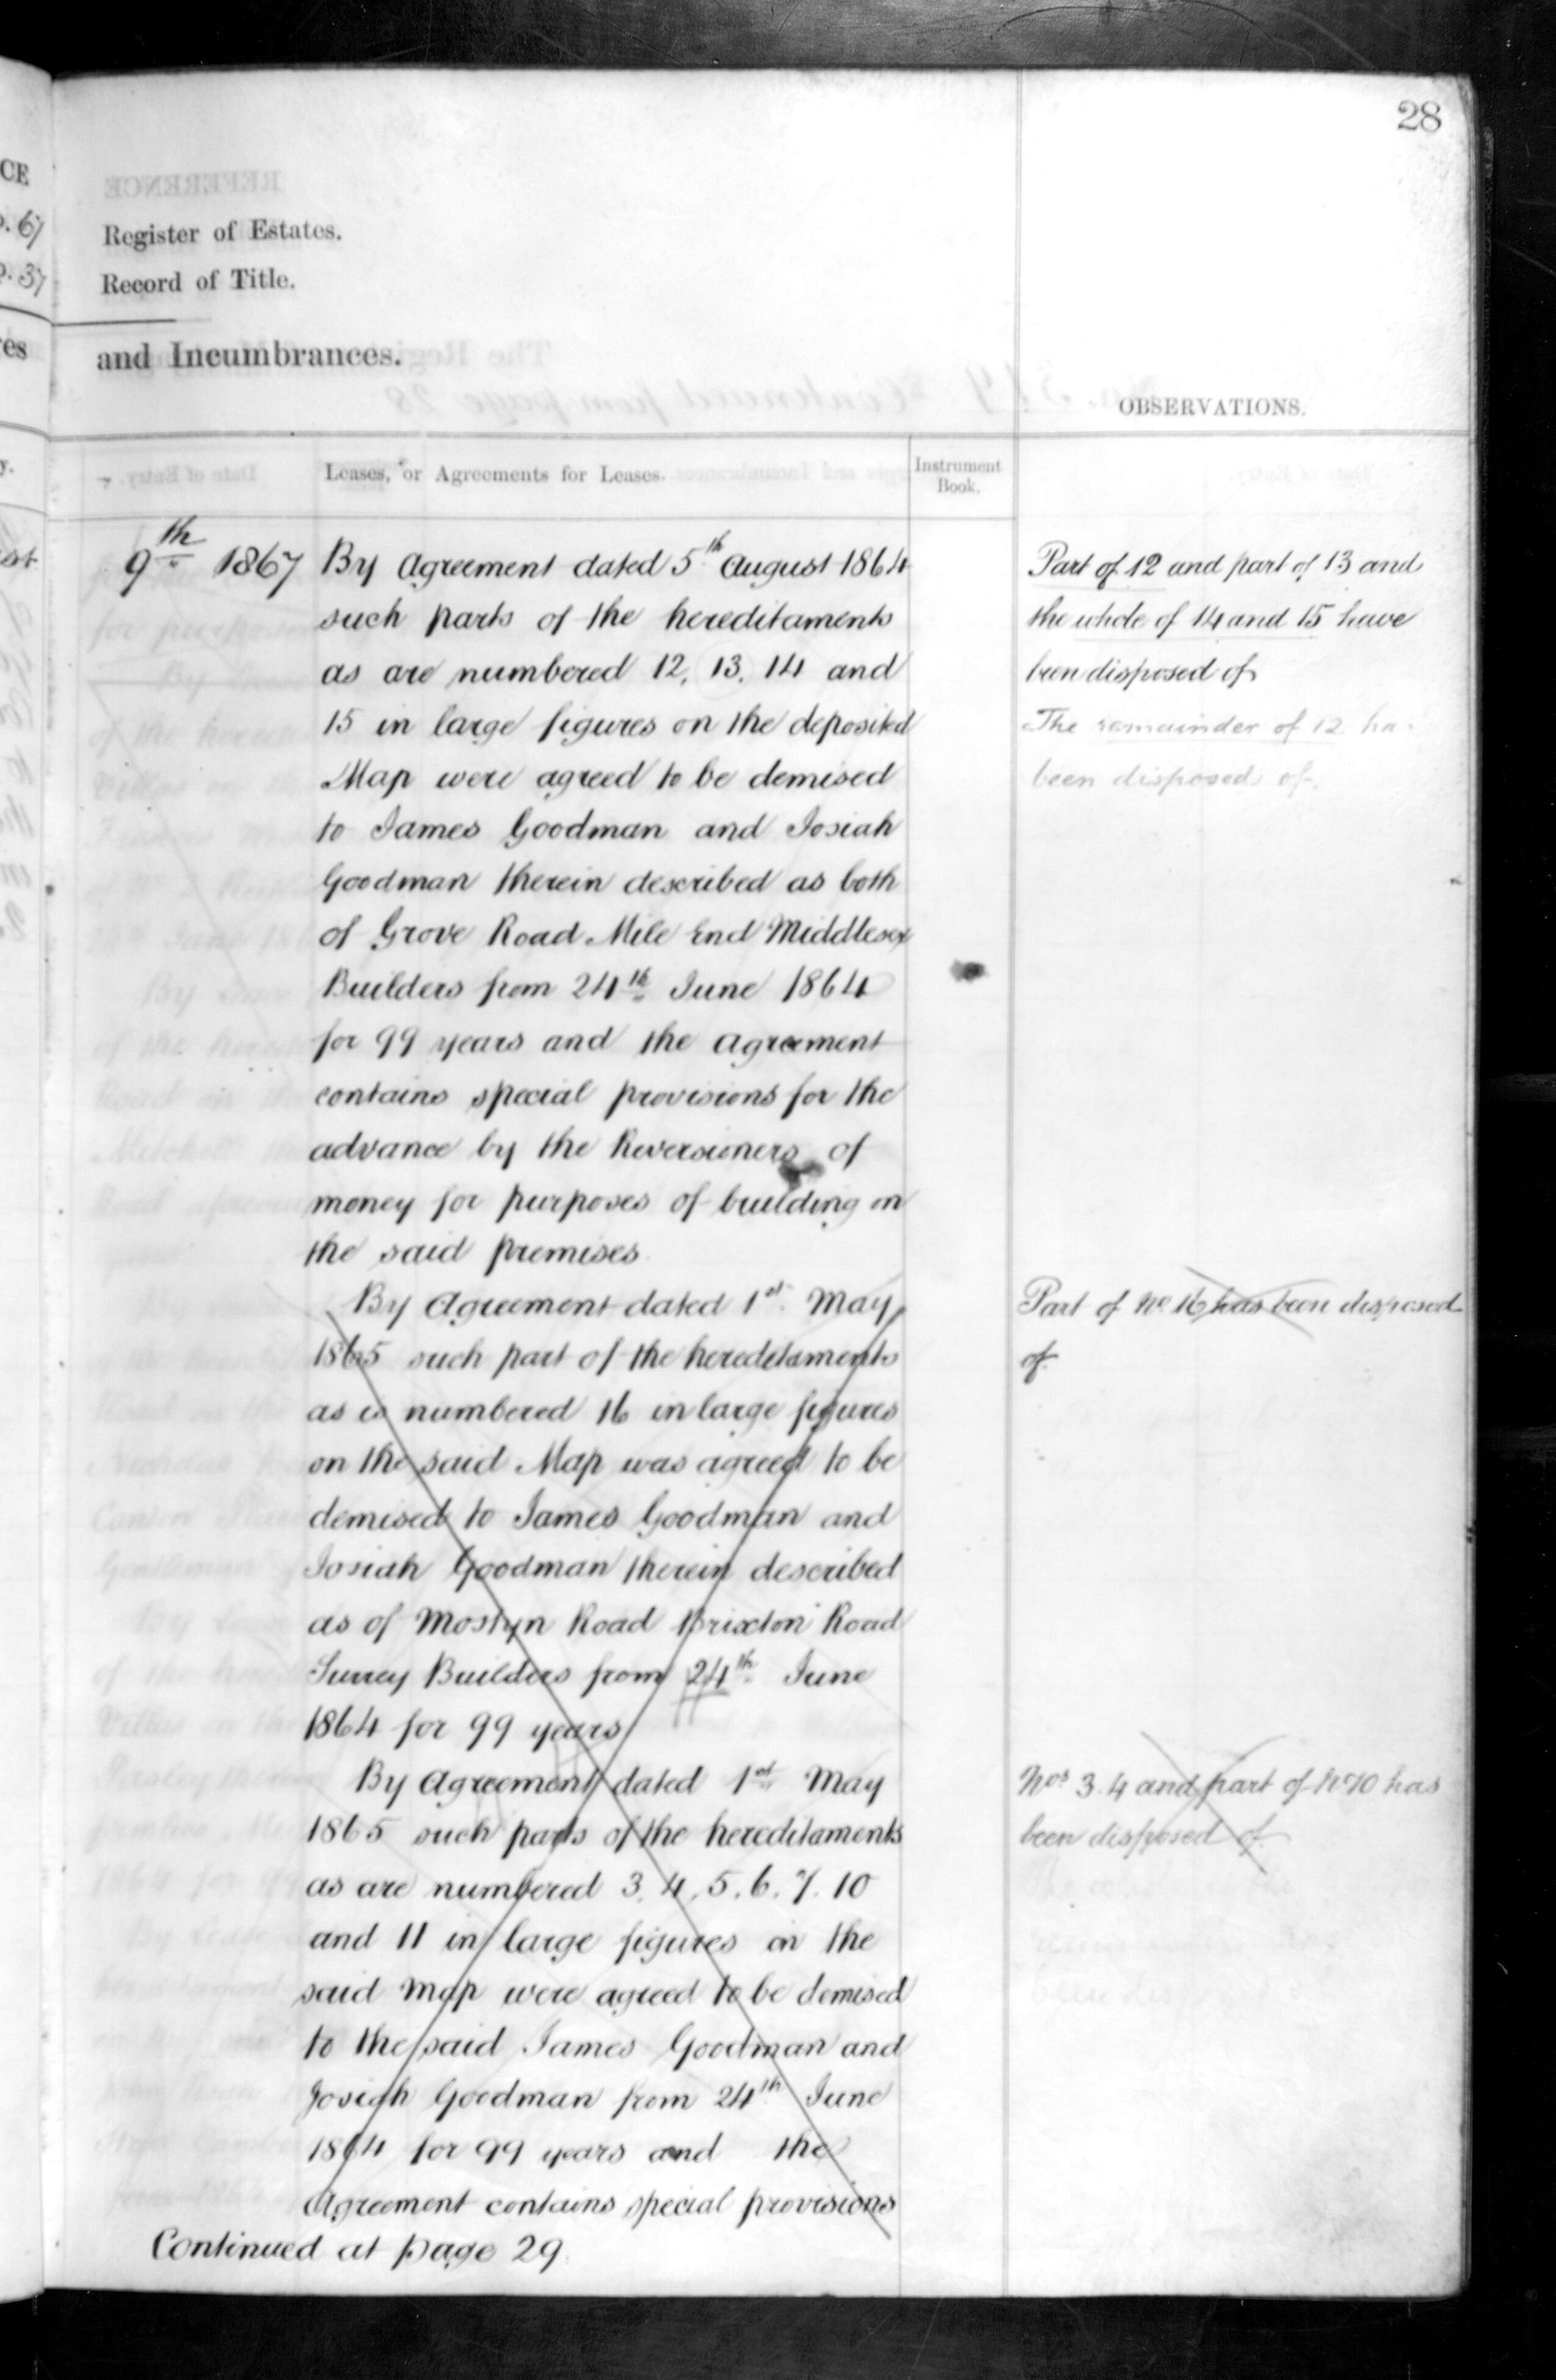 28
Register of Estates.
Record of Title.
and Incumbrances.
OBSERVATIONS.
Leases, or Agreements for Leases.
Instrument
Book.
9th 1867
By Agreement dated 5th August 1864
such parts of the hereditaments
as are numbered 12, 13, 14 and
15 in large figures on the deposited
Map were agreed to be demised
to James Goodman and Josiah
Goodman therein described as both
of Grove Road Mile End Middlesex
Builders from 24th June 1864
for 99 years and the agreement
contains special provisions for the
advance by the Reversioners of
money for purposes of building on
the said premises
By Agreement dated 1st May
1865 such part of the hereditaments
as is numbered 16 in large figures
on the said Map was agreed to be
demised to James Goodman and
Josiah Goodman therein described
as of Mostyn Road Brixton Road
Surrey Builders from 24th June
1864 for 99 years
By Agreement dated 1st May
1865 such parts of the hereditaments
as are numbered 3. 4. 5. 6. 7. 10
and 11 in large figures on the
said Map were agreed to be demised
to the said James Goodman and
Josiah Goodman from 24th June
1864 for 99 years and the
Agreement contains special provisions
Continued at page 29
Part of 12 and part of 13 and
the whole of 14 and 15 have
been disposed of
The remainder of 12 has
been disposed of.
Part of No 16 has been disposed
of
Nos 3. 4 and part of No 10 has
been disposed of